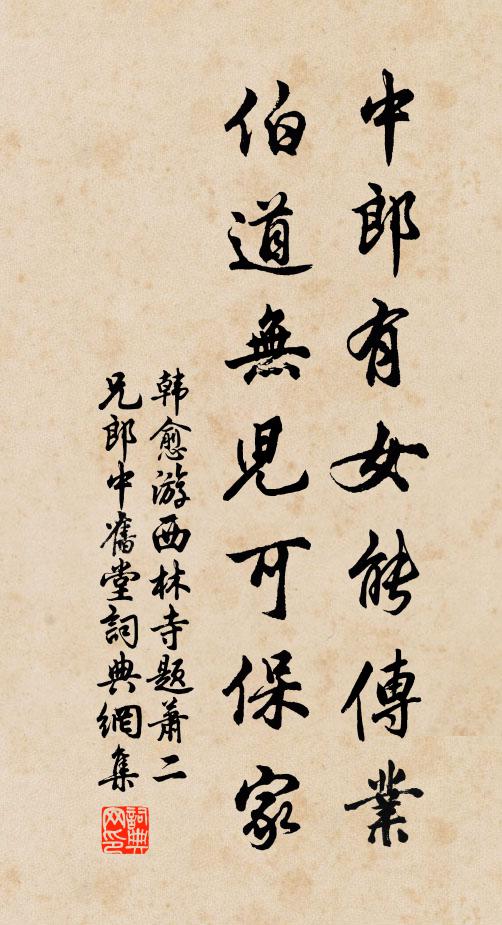 中郎有女能傳業
伯道無兒可保家
韩愈游西林寺题萧二
兄郎中舊堂詞典網集
詞典网印